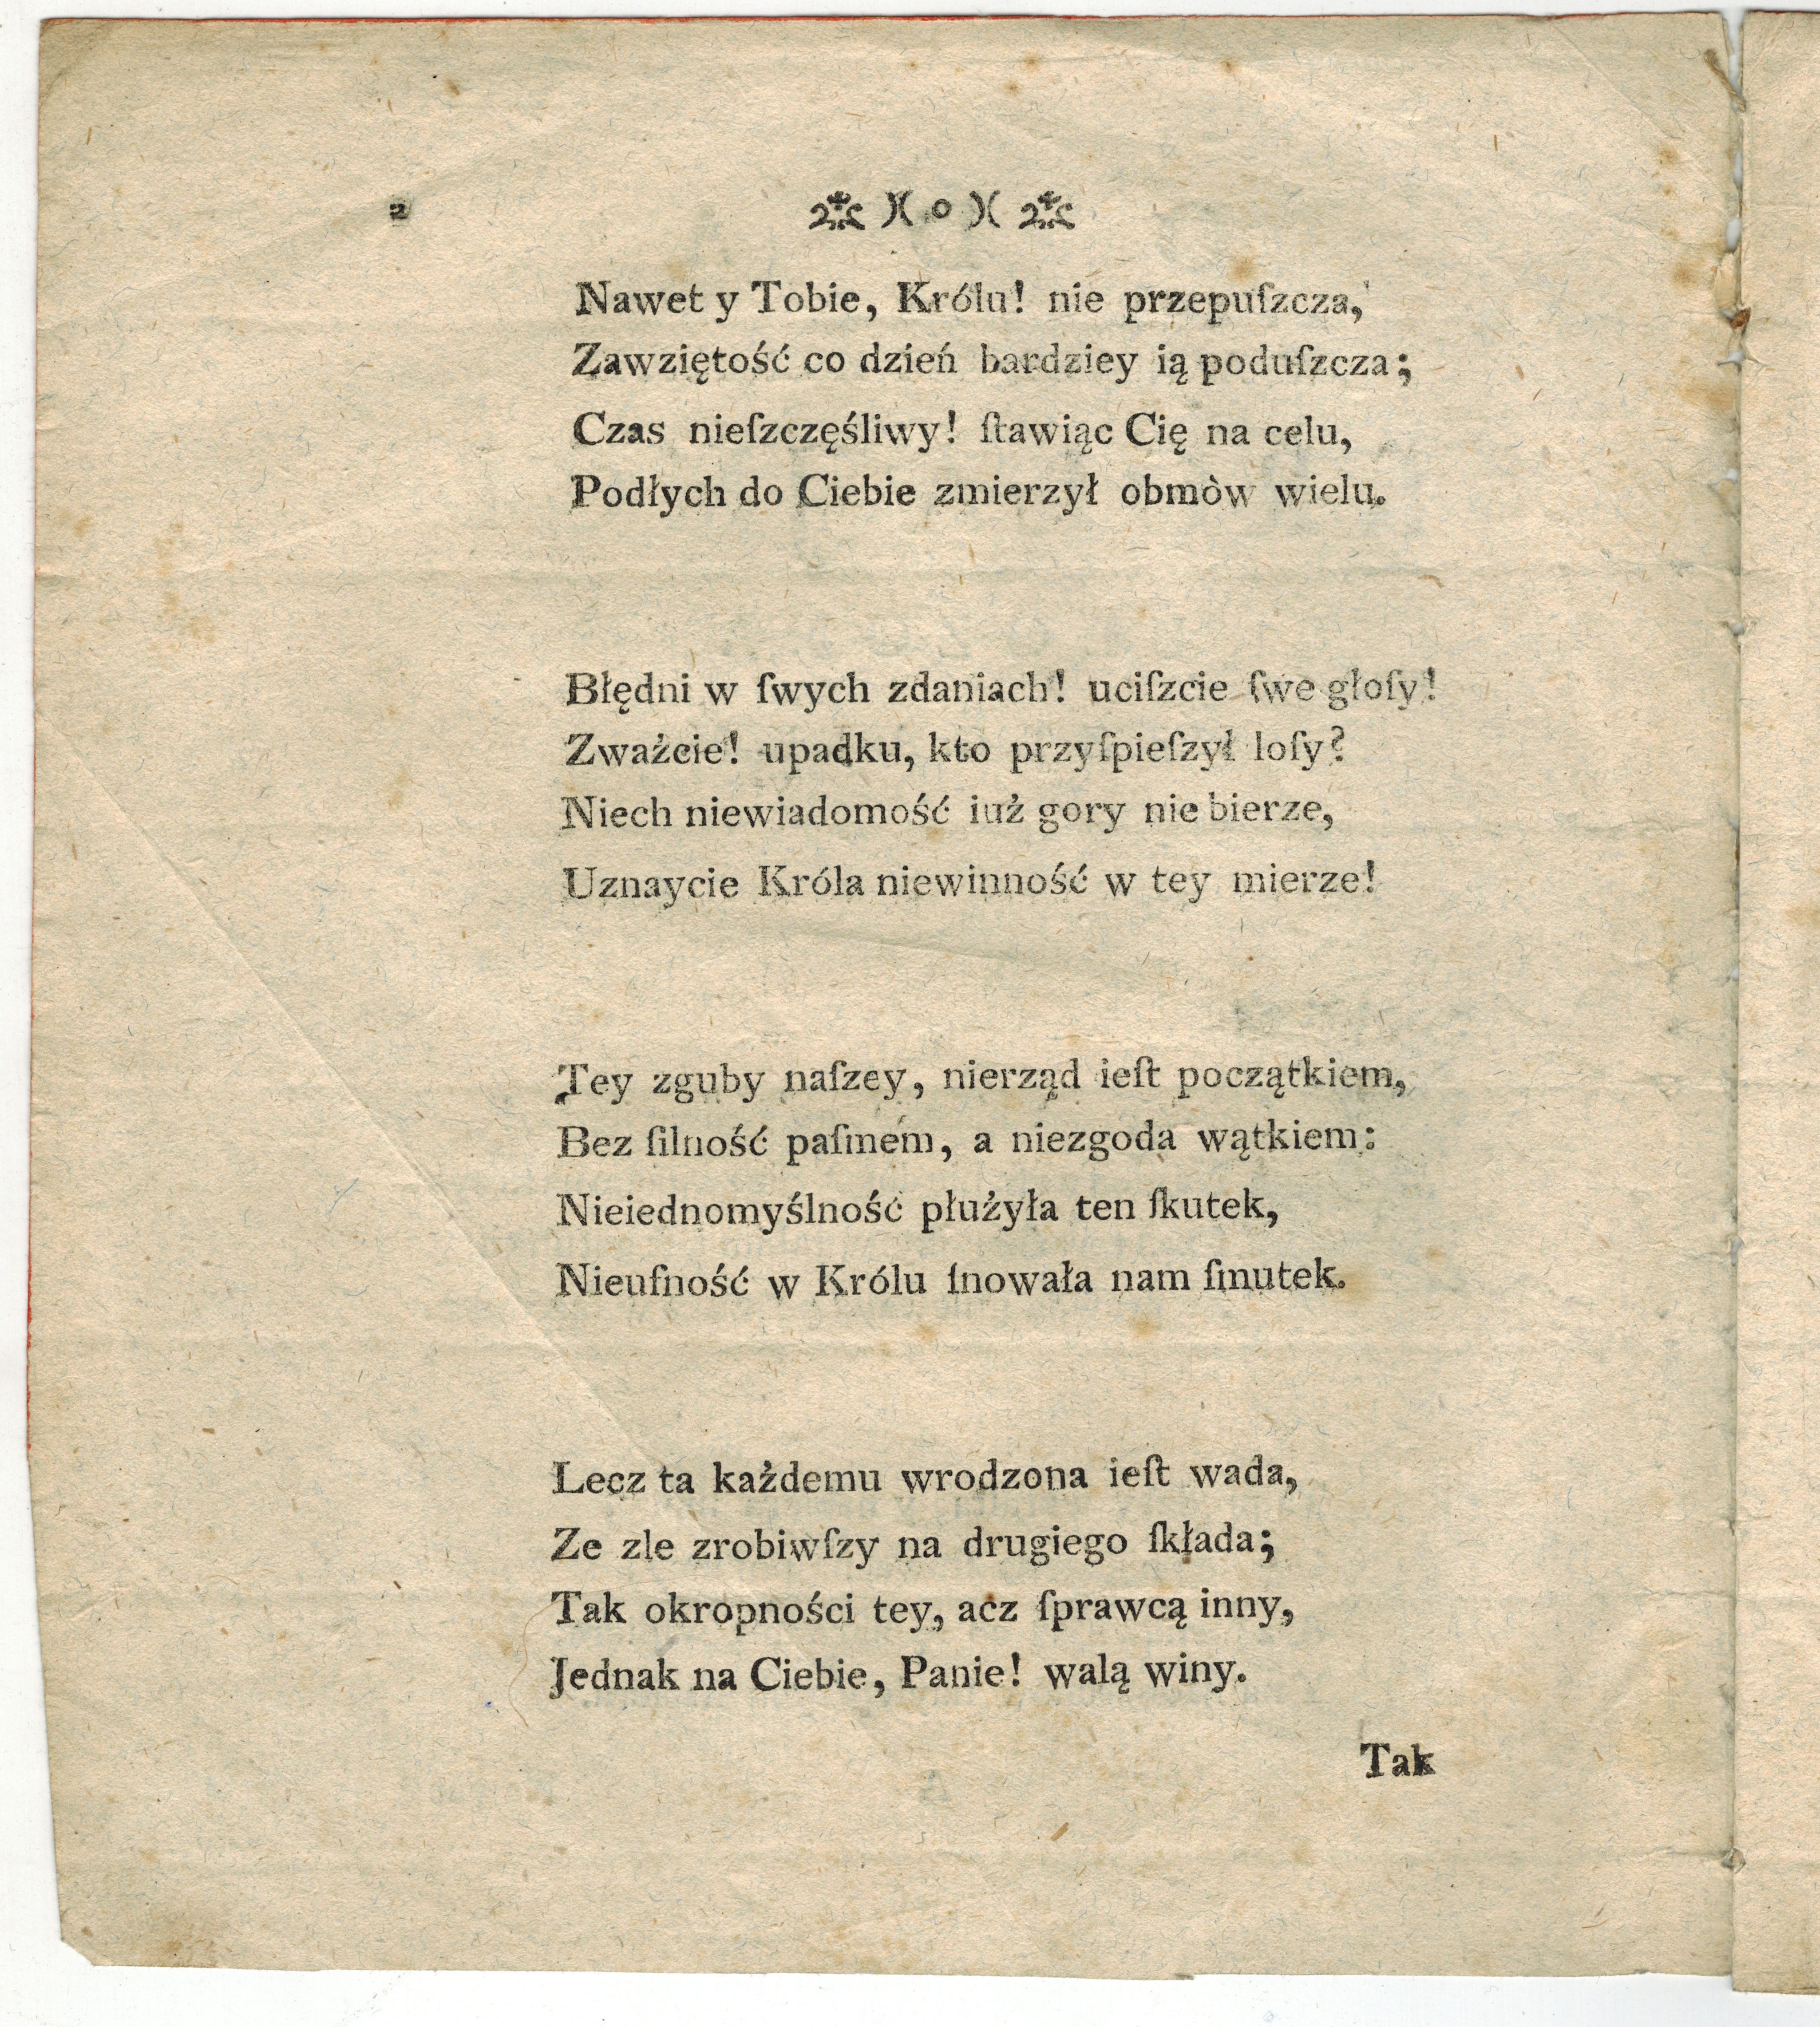 2
)( o )(
Nawet y Tobie, Królu! nie przepuſzcza,
Zawziętość co dzień bardziey ią poduſzcza;
Czas nieſzczęśliwy! ſtawiąc Cię na celu,
Podłych do Ciebie zmierzył obmòw wielu.
Błędni w ſwych zdaniach! uciſzcie ſwe głoſy!
Zważcie! upadku, kto przyſpieſzył loſy?
Niech niewiadomość iuż gory nie bierze,
Uznaycie Króla niewinność w tey mierze!
Tey zguby naſzey, nierząd ieſt początkiem,
Bez ſilność paſmem, a niezgoda wątkiem:
Nieiednomyślność płużyła ten ſkutek,
Nieufność w Królu ſnowała nam ſmutek.
Lecz ta każdemu wrodzona ieſt wada,
Ze zle zrobiwſzy na drugiego ſkłada;
Tak okropności tey, acz ſprawcą inny,
Jednak na Ciebie, Panie! walą winy.
Tak